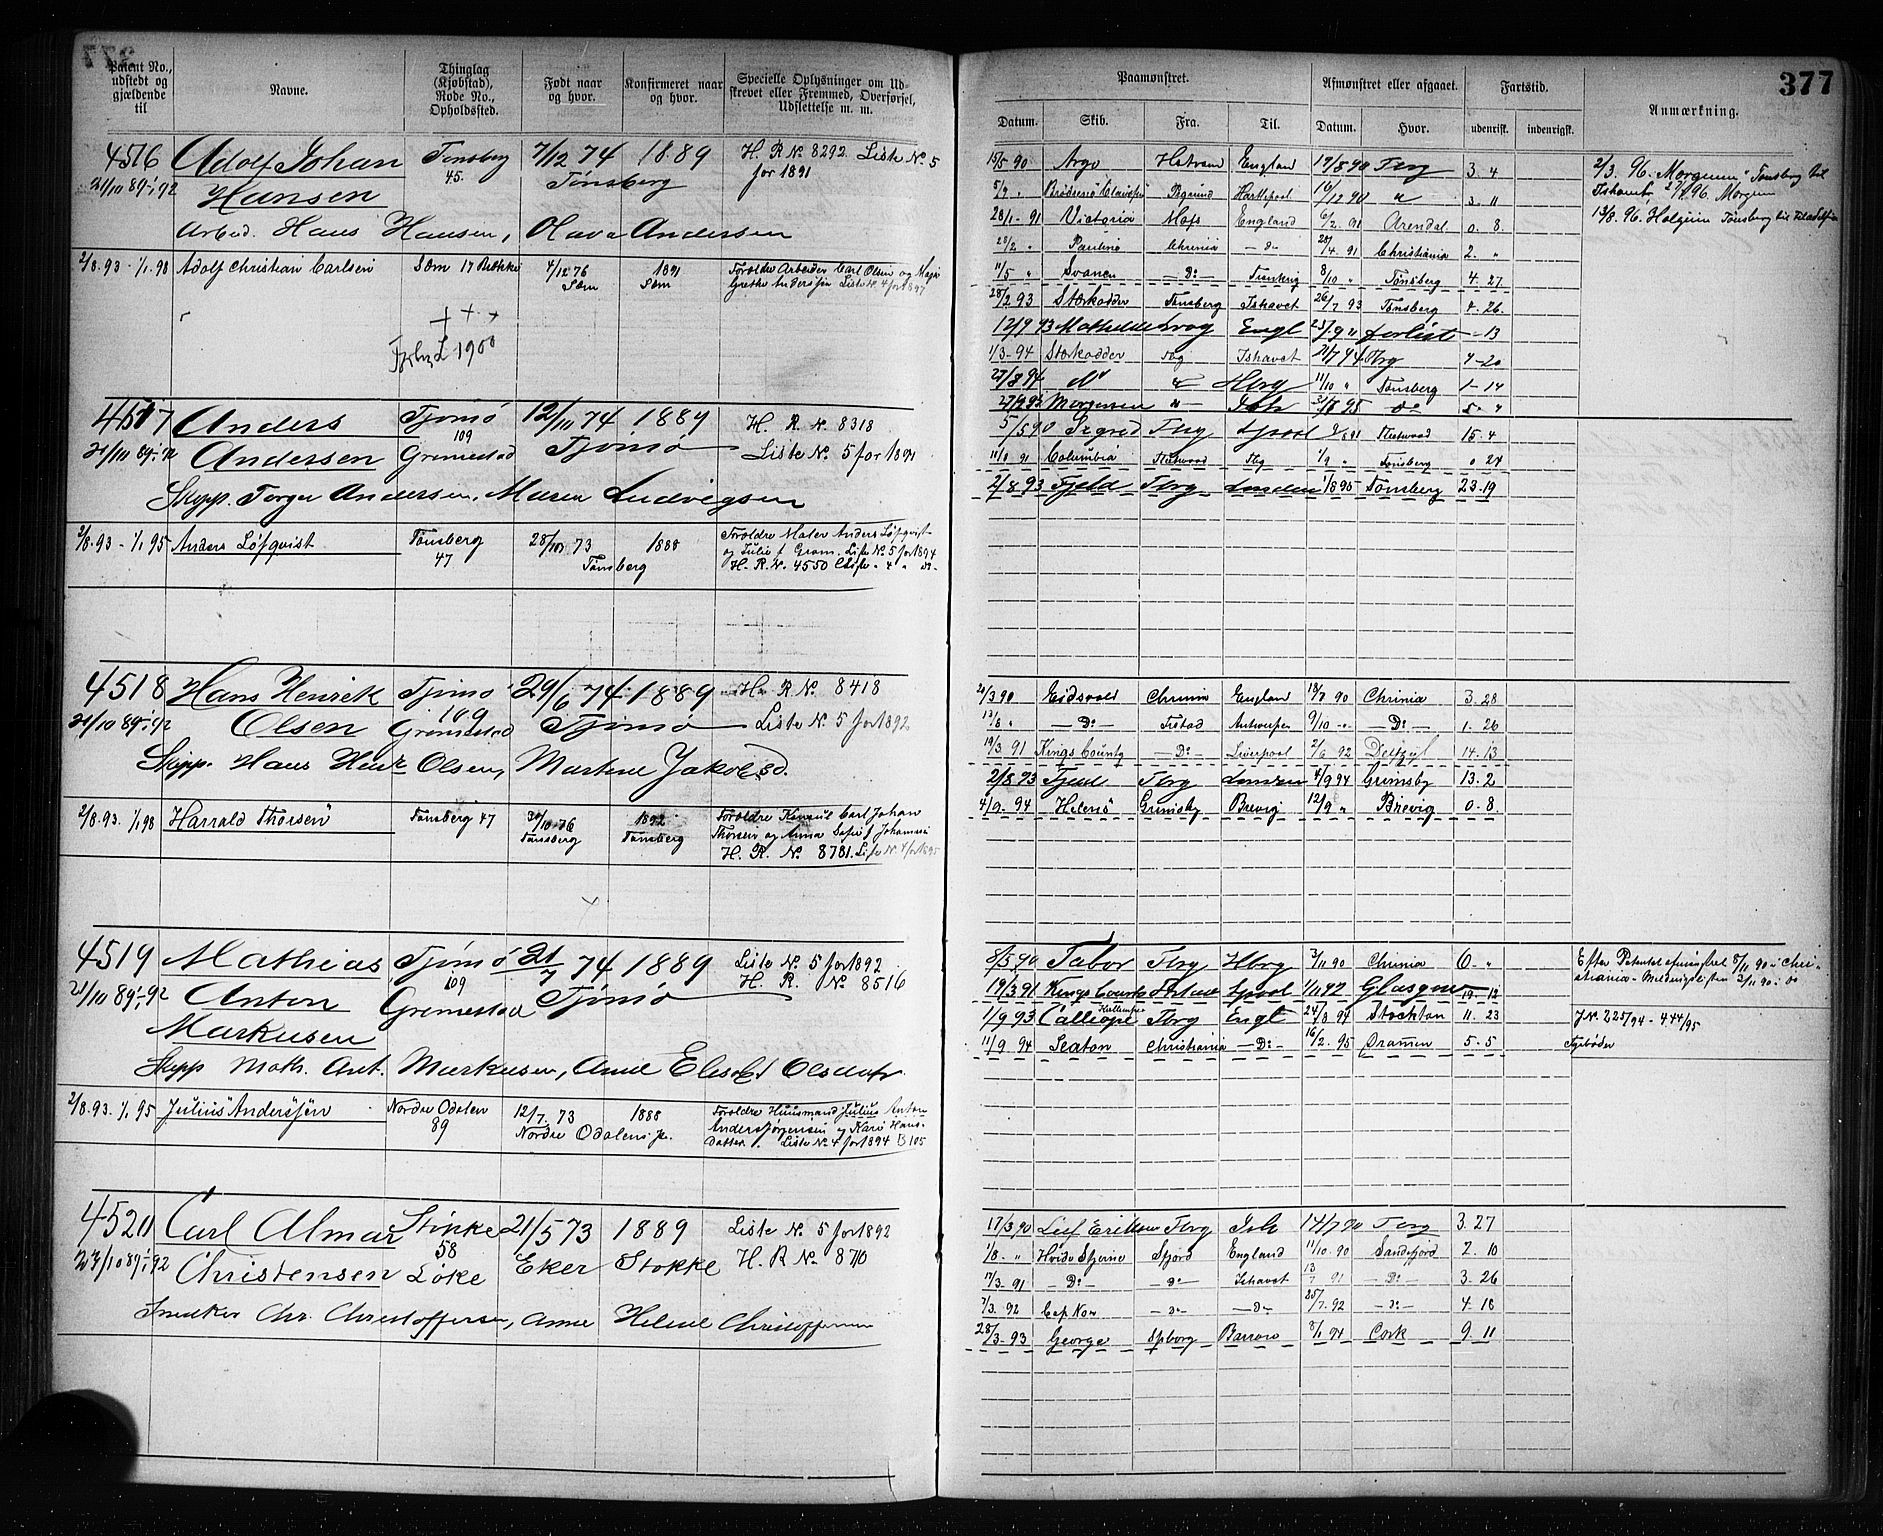 377
Patent No., udstedt og gjældende til
Navne.
Thinglag (Kjøbstad), Rode No., Opholdssted.
Født naar og hvor.
Konfirmeret naar og hvor.
Specielle Oplysninger om Udskrevet eller Fremmed, Overførsel, Udslettelse m. m.
4516 Adolf Johan Tønsberg 7/12 74 18.89 H. R No 8292 Liste No 5
21/10 89-1/1 92 Hansen 45. Tønsberg for 1891
Arbed. Hans Hansen, Olava Andersen
2/8.93 - 1/1.98 Adolf Christian Carlsen Sæm 17 4/12 76 1891 Forældre Arbeider Carl Olsen og
Sæm Sæm Grethe Andersen Liste No 4 for 1897
+ + +
1900
4517 Anders Tjømø 12/11 74 1889 H. R No 8318
21/10 89-1/1 92 Andersen 109 Grimestad Tjømø Liste No 5 for 1891
Skipp. Torger Andersen, Maren Ludvigsen
2/8.93 - 1/1 95 Anders Löfqvist Tønsberg 28/10 73 1888 Forældre Maler Anders Löfqvist
47 Tønsberg og Julie f. Gram. Liste No 5 for 1894
H. R. No 4550
4518 Hans Henrik Tjømø 29/6 74 1889 H. R No 8418
21/10 89-1/1 92 Olsen 109 Grimestad Tjømø Liste No 5 for 1892
Skipp. Hans Henr. Olsen, Martine Jakobsd.
2/8.93. 1/1 98 Harrald Thorsen Tønsberg 47 30/10.76 1892 Forældre Carl Johan
Tønsberg Tønsberg Thorsen og Anna Sofie f Johannsen
H. R. No 8781. Liste No 4 for 1895
4519 Mathias Tjømø 21/7 74 1889 Liste No 5 for 1892
21/10 89-1/1 92 Anton 109 Grimestad Tjømø H. R. No 8516
Markusen
Skipp Math. Ant. Markusen, Anne Elisabet Olsdatr.
2/8.93. 1/1 95 Julius Anderssen Nordre Odalen 12/7.73 1888 Forældre Huusmand Julius Anton
89 Nordre Odalens og Kari Hans-
datter. Liste No 4 for 1894 B 105
4520 Carl Almar Stokke 21/5 73 1889 Liste No 5 for 1892
24/10 89-1/1 92 Christensen 58 Løke Eker Stokke H. R No 8710
Snedker Chr. Christoffersen, Anne Helene Christoffersen
Paamønstret.
Afmønstret eller afgaaet.
Fartstid.
Anmærkning.
Datum. Skib. Fra. Til. Datum. Hvor. udenrisk. indenrigsk.
15/5 90 Argo England 19/8 90 Tbrg 3. 4
Hartlepool 16/12 90 " 3. 11
28/1- 91 Victoria Moss England 6/2 91 Arendal 0. 8.
28/2 " Pauline Chrinia - D - 28/4. 91 Christiania 2. "
11/5 " Svanen - Do - Frankrig 8/10 " Tønsberg 4. 27
28/2 93 Stærkodder Tønsberg Ishavet 26/7 93 Tønsberg 4-26.
12/9 93 Mathilde Engl forlist -13
1/3-94 Stærkodder Tbg Ishavet 21/7 94 Tbrg 4-20
27/8 94 Hbrg 11/10 " Tønsberg 1-14
Morgenen Ish 31/8 95 Do 5. 4
2/3. 96. "Morgenen" Tønsberg til
Ishavet, 96. Morgen
13/8. 96. Holgeim Tønsberg til
5/5 90 Sigrid Tbrg Lpool Fleetwood 15. 4
11/8 91 Columbia Fleetwood Tbg 1/9 " Tønsberg 0 24
2/8 93 Fjeld Tbrg London 1/8 95 Tønsberg 23-19
21/3 90 Eidsvold Chrinia England 18/7 90 Chrinia 3. 28
13/8 " - Do - Frstad Antwerpen 9/10 - - Do - 1. 26
19/3 91 Kings County - Do - Liverpool 2/6 92 Delfzyl 14. 13
2/8 93 Fjeld Tbrg London 4/9 94 Grimsby 13. 2
4/9. 94 Helenø Grimsby Brevig 12/9 " Brevig 0. 8.
8/5 90 Tabor Tbrg Hbrg 3/11 90 Chrinia 6. "
19/3 91 Kings County Frstad Lpool 1/11 92 Glasgow 19. 12
1/9 93 Calliope Tbrg Engl 24/8 94 Stockton 11. 23
11/9 94 Seaton Christiania - Do - 16/2. 95 Drammen 5. 5
Efter Patentets 8/11 90 i Chri-
stiania
J No 225/94 - 444/95
17/3 90 Leif Erikson Tbrg Ish 14/7 90 Tbrg 3. 27
1/8. " Hvide Stjerne Sfjord England 11/10. 90 Sandefjord 2. 10
17/3. 91 - Do - - D - Ishavet 13/7 91 - Do - 3. 26
7/3. 92 Cap Nor - D - - D - 25/7. 92 - D - 4. 18
28/3. 93 George Spborg Barrow 8/1 94 Cork 9. 11